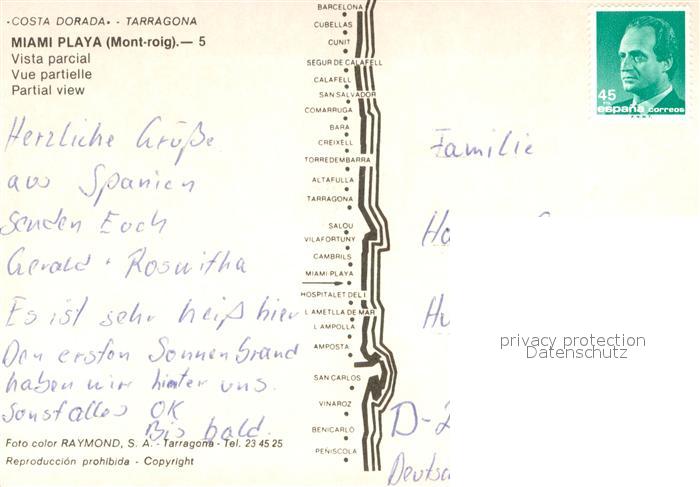 «COSTA DORADA» - TARRAGONA
MIAMI PLAYA (Mont-roig).— 5
Vista parcial
Vue partielle
Partial view
Herzliche Grüße
aus Spanien
senden Euch
Gerald + Roswitha
Es ist sehr heiß hier
Den ersten Sonnenbrand
haben wir hinter uns.
Sonst alles OK
Bis bald.
Foto color RAYMOND, S. A. - Tarragona - Tel. 23 45 25
Reproducción prohibida - Copyright
BARCELONA
CUBELLAS
CUNIT
SEGUR DE CALAFELL
CALAFELL
SAN SALVADOR
COMARRUGA
BARA
CREIXELL
TORREDEMBARRA
ALTAFULLA
TARRAGONA
SALOU
VILAFORTUNY
CAMBRILS
MIAMI PLAYA
HOSPITALET DEL I.
L AMETLLA DE MAR
L AMPOLLA
AMPOSTA
SAN CARLOS
VINAROZ
BENICARLO
PEÑISCOLA
45
españa correos
F.N.M.T.
Familie
Ha
Hu
D-2
Deutsc
privacy protection
Datenschutz